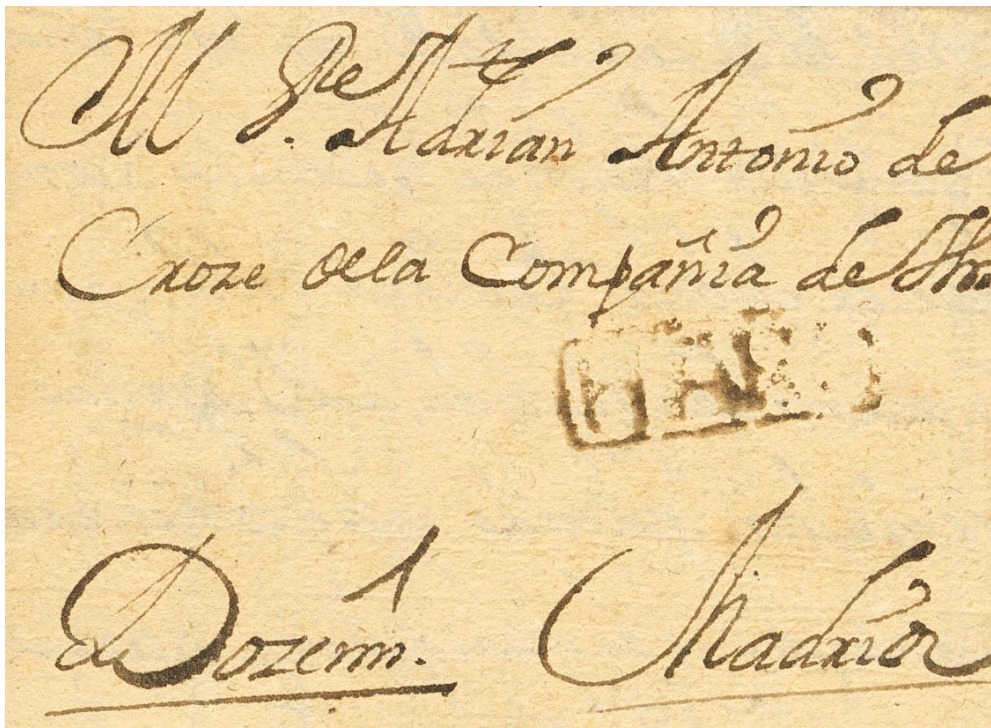 Al P.e Adrian Antonio de
Croze dela Compañia de
de Dozenm. Madrid